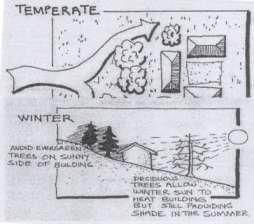 TEMPERATE
WINTER
AVOID EVERGREEN
TREES ON SUNNY
SIDE OF BULDING
DECIDUOUS
TREES ALLOW
WINTER SUN TO
HEAT BUILDINGS
BUT STILL PROVIDING
SHADE IN THE SUMMER